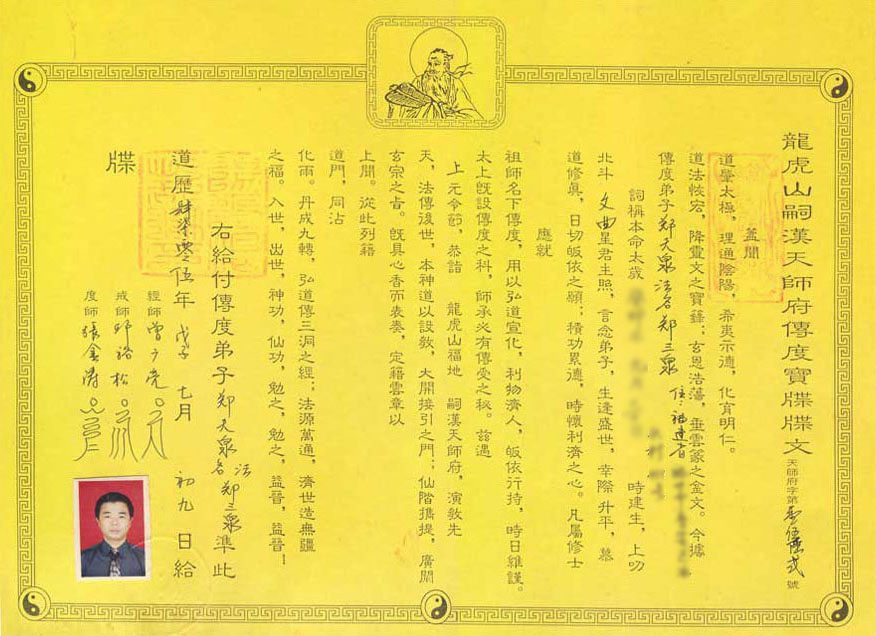 龍虎山嗣漢天師府傳度寶牒牒文 天師府字第 號
蓋聞
道肇太極，理通陰陽，希夷示德，化育明仁。
道法恢宏，降靈文之寶籙；玄恩浩蕩，垂雲篆之金文。今據
傳度弟子鄭天泉 法名鄭三泉 住：福建省
詞稱本命太歲 時建生，上叨
北斗 文曲星君主照，言念弟子，生逢盛世，幸際升平，慕
道修真，日切皈依之願；積功累德，時懷利濟之心。凡屬修士
應就
祖師名下傳度，用以弘道宣化，利物濟人，皈依行持，時日維謹。
太上既設傳度之科，師承必有傳受之秘。茲遇
上元令節，恭詣 龍虎山福地 嗣漢天師府，演教先
天，法傳後世，本神道以設教，大開接引之門；仙階攜提，廣闡
玄宗之旨。既具心香而表奏，定籍雲章以
上聞。從此列籍
道門，同沾
化雨。丹成九轉，弘道傳三洞之經；法源萬通，濟世造無疆
之福。入世，出世，神功，仙功，勉之，勉之，益晉，益晉！
右給付傳度弟子鄭天泉 法名 鄭三泉準此
道歷肆柒零伍年 戊子 七月 初九 日給
經師曾廣亮
戒師邱裕松
度師張金濤
牒